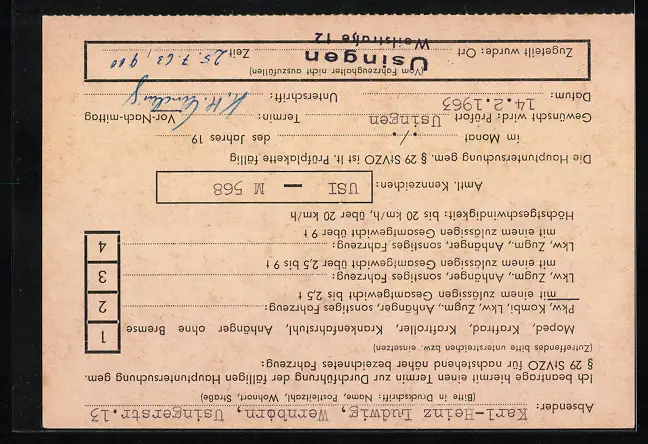 Absender: Karl-Heinz Ludwig, Wernborn, Usingerstr.13
(Bitte in Druckschrift: Name, Postleitzahl, Wohnort, Straße)
Ich beantrage hiermit einen Termin zur Durchführung der fälligen Hauptuntersuchung gem.
§ 29 StVZO für nachstehend näher bezeichnetes Fahrzeug:
(Zutreffendes bitte unterstreichen bzw. einsetzen)
Moped, Kraftrad, Kraftroller, Krankenfahrstuhl, Anhänger ohne Bremse 1
Pkw, Kombi, Lkw, Zugm., Anhänger, sonstiges Fahrzeug: 2
mit einem zulässigen Gesamtgewicht bis 2,5 t
Lkw, Zugm., Anhänger, sonstiges Fahrzeug: 3
mit einem zulässigen Gesamtgewicht über 2,5 bis 9 t
Lkw, Zugm., Anhänger, sonstiges Fahrzeug: 4
mit einem zulässigen Gesamtgewicht über 9 t
Höchstgeschwindigkeit: bis 20 km/h, über 20 km/h
Amtl. Kennzeichen: USI — M 568
Die Hauptuntersuchung gem. § 29 StVZO ist lt. Prüfplakette fällig
im Monat ./. des Jahres 19
Gewünscht wird: Prüfort Usingen Termin: Vor-Nach-mittag
Datum: 14.2.1963 Unterschrift:
(Vom Fahrzeughalter nicht auszufüllen)
Zugeteilt wurde: Ort Usingen Zeit 25.7.63, 9.00
Weilstraße 12